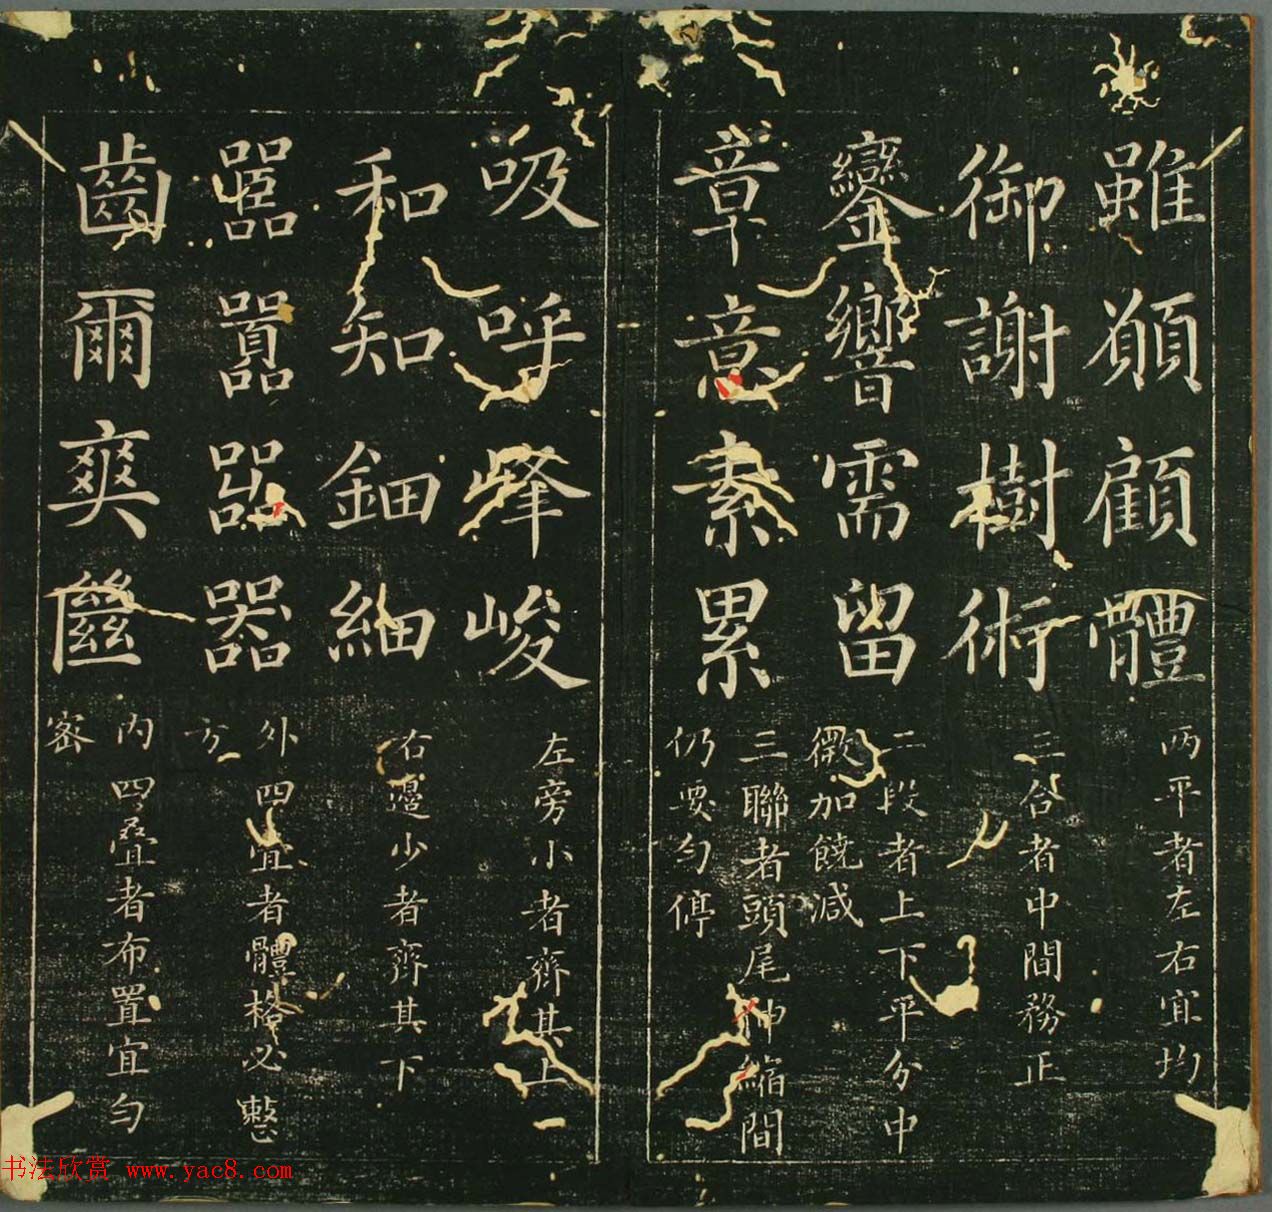 雖願顧體
两平者左右宜均
御謝樹術
三合者中間務正
鑾響需留
二段者上下平分中
微加饒減
章意素累
三聯者頭尾伸縮間
仍要勻停
吸呼峰峻
左旁小者齊其上
和知鈿細
右邊少者齊其下
嚚囂嘂器
外四宜者體格必整
方
齒爾爽
內四疊者布置宜勻
密
书法欣赏 www.yac8.com